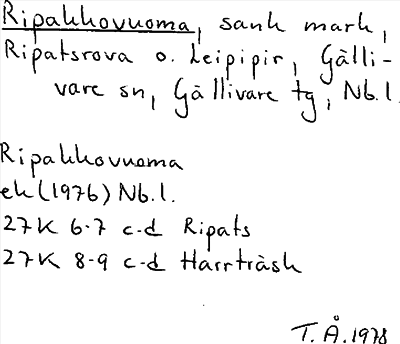 Ripakkovuoma, sank mark,
Ripatsrova o. Leipipir, Gälli-
vare sn, Gällivare tg, Nb.l.
Ripakkovuoma
ek (1976) Nb.l.
27K 6-7 c-d Ripats
27K 8-9 c-d Harrträsk
T. Å. 1978